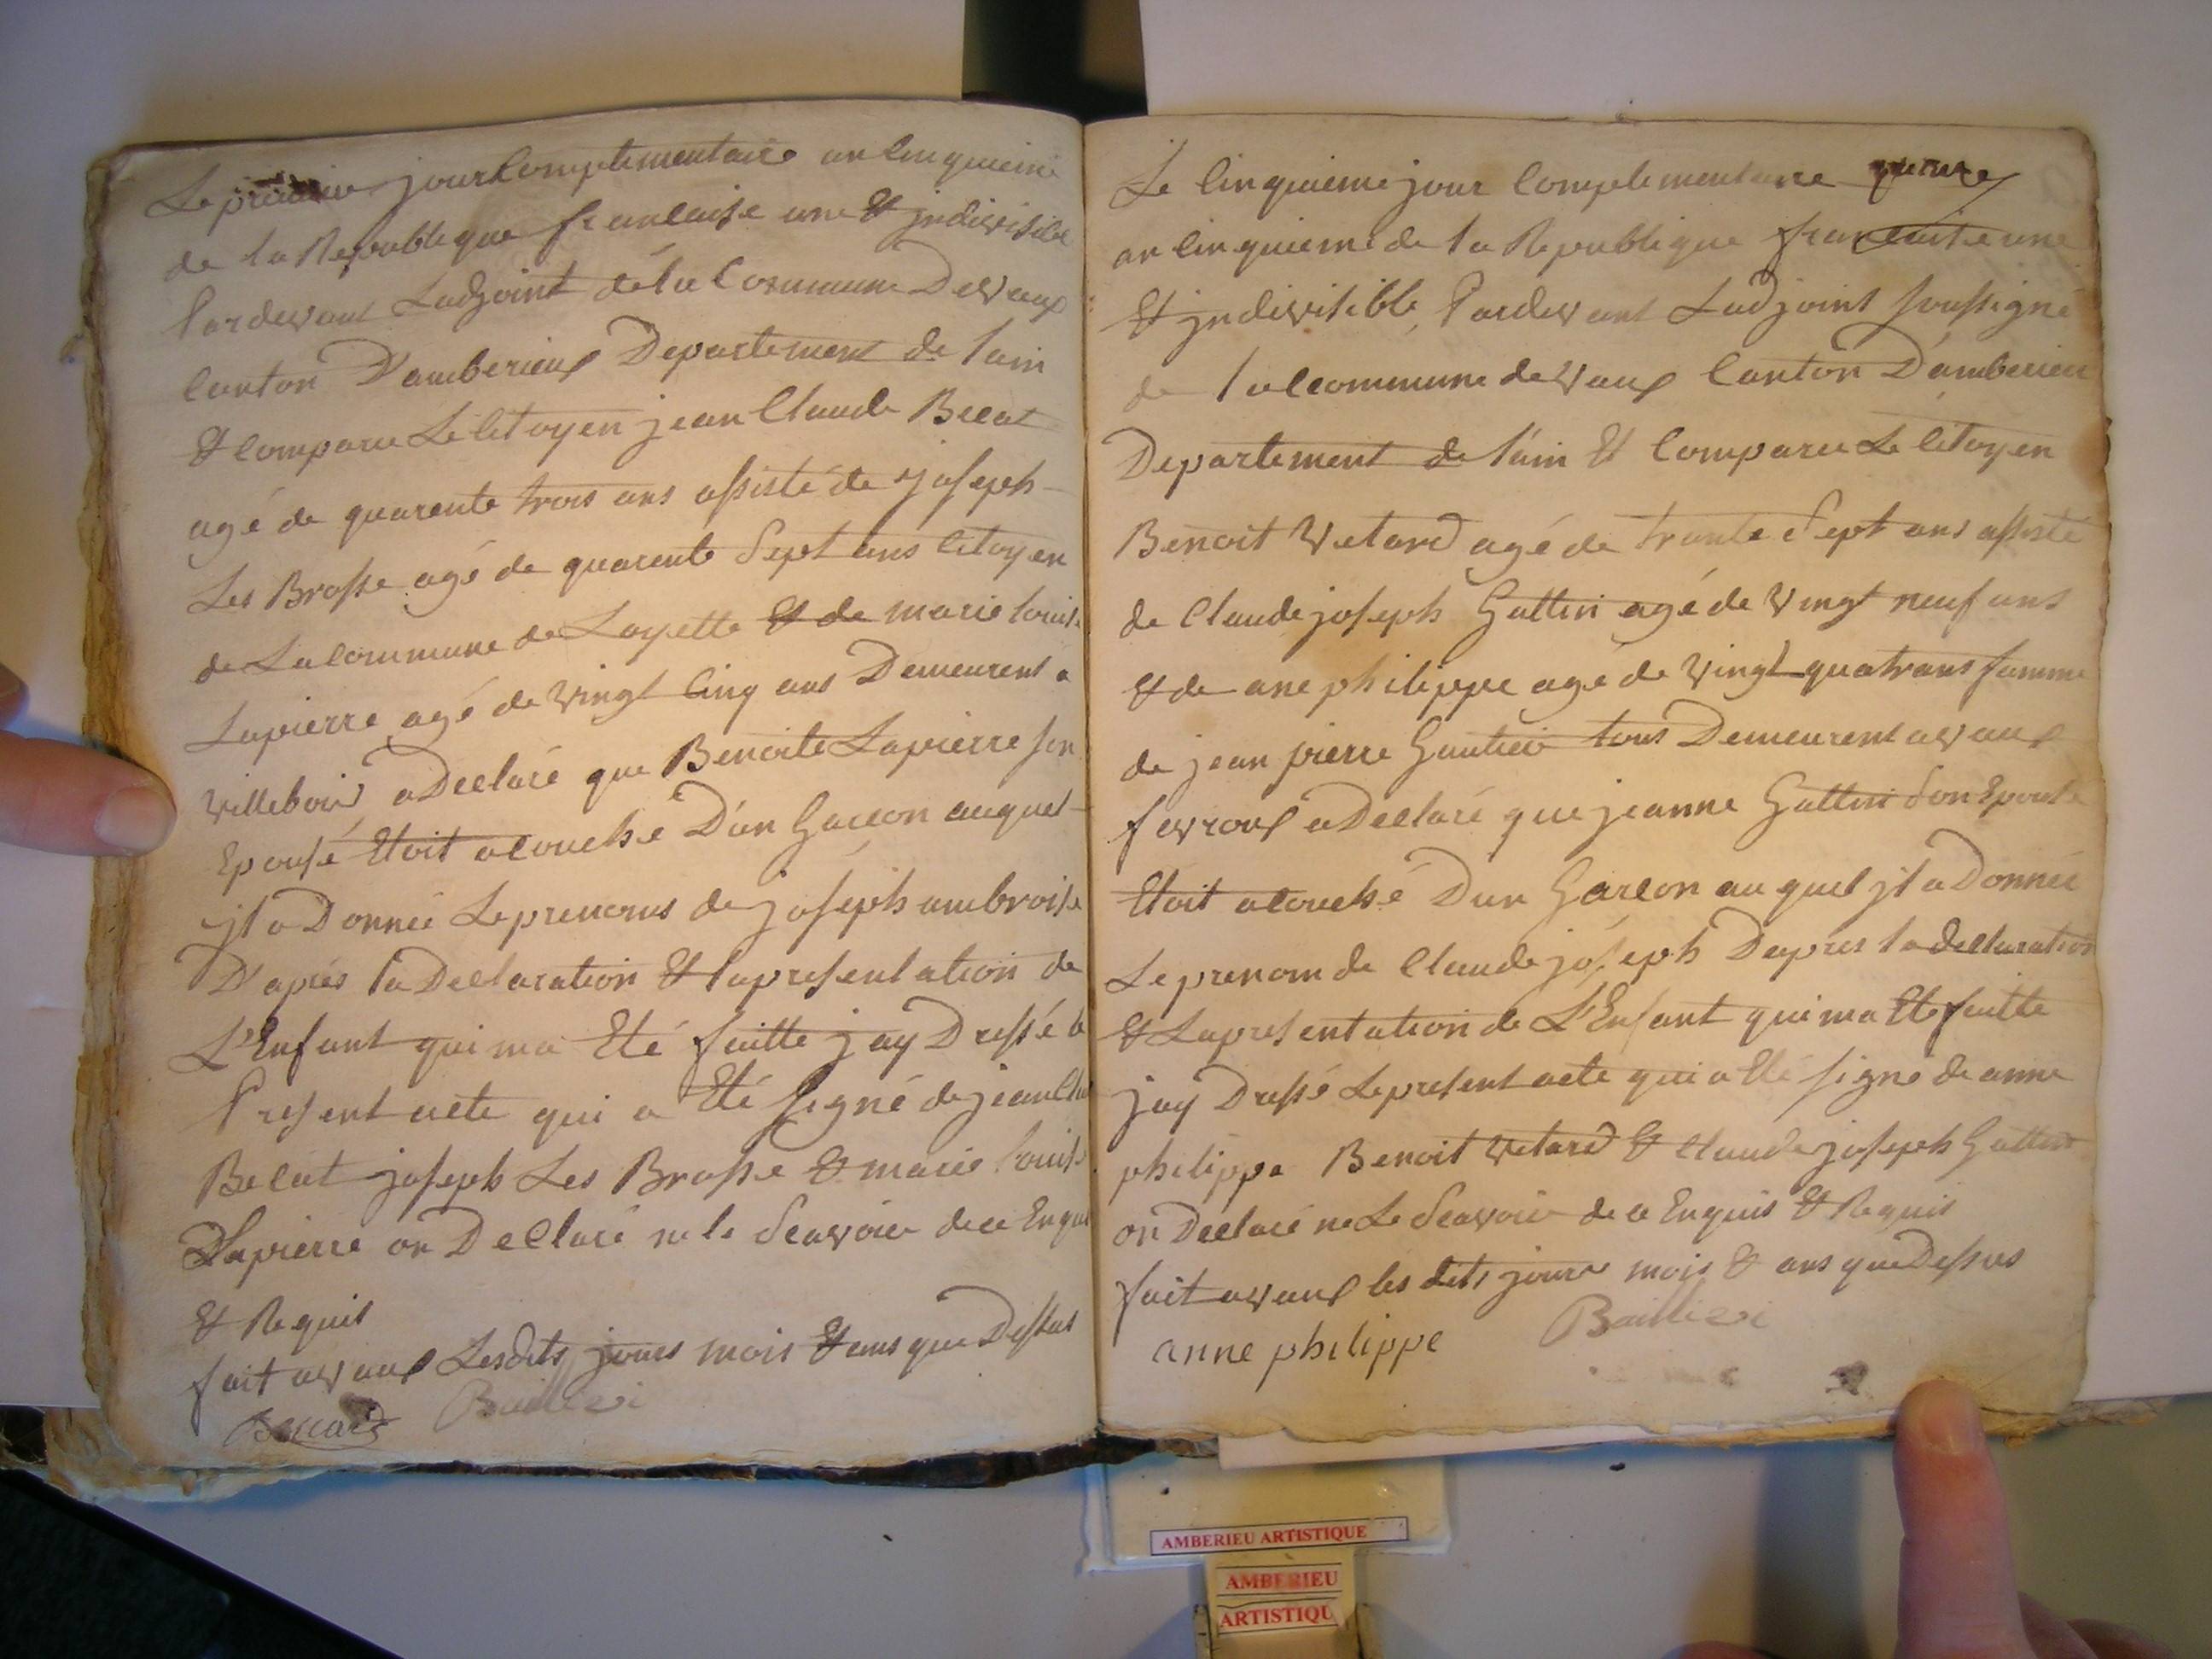 Le jour Complementaire an Cinquieme
de la Republique francaise une & jndivisible
Pardevant Ladjoint dela Commune Devaux
Canton D'amberieux Departement de lain
& Comparu Le Citoyen jean Claude Belat
agé de quarente trois ans assisté de joseph
Les Brosse agé de quarente Sept ans Citoyen
de La Commune de Loyette & de marie louise
Lapierre agé de vingt Cinq ans Demeurent a
villebois a Declaré que Benoite Lapierre son
Epousé Etoit acouché D'un Garcon auquel
jl a Donnée Le prenoms de joseph ambroise
D'apres la Declaration & la presentation de
L'Enfant qui ma Eté faitte jay Dressé le
Present acte qui a Eté signé de jean Cla
Belat joseph Les Brosse & marie louise
Lapierre on Declaré ne le Scavoir de ce Enquis
& Requis
fait a vaux Lesdits jours mois & ans que Dessus
Baillivi
Le Cinquieme jour Complementaire
an Cinquieme de la Republique francaise une
& jndivisible, Pardevant Ladjoint soussigné
de la Commune de vaux Canton D'amberieu
Departement de l'ain & Comparu Le Citoyen
Benoit Vetard agé de trante Sept ans assisté
de Claude joseph Guttin agé de vingt neuf ans
& de ane philippe agé de vingt quatrans famme
de jean pierre Gautier tous Demeurent a vaux
fevroux a Declaré que jeanne Guttin Son Epouse
Etoit acouché D'un Garcon au quel jl a Donnée
Le prenom de Claude joseph Dapres la declaration
& La presentation de L'Enfant qui ma Ete faitte
jay Dressé Le present acte qui a Eté signé de anne
philippe Benoit Vetard & Claude joseph Guttin
on Declaré ne Le Scavoir de ce Enquis & Requis
fait a vaux les dits jours mois & ans que Dessus
anne philippe Baillivi
AMBERIEU ARTISTIQUE
AMBERIEU
ARTISTIQU